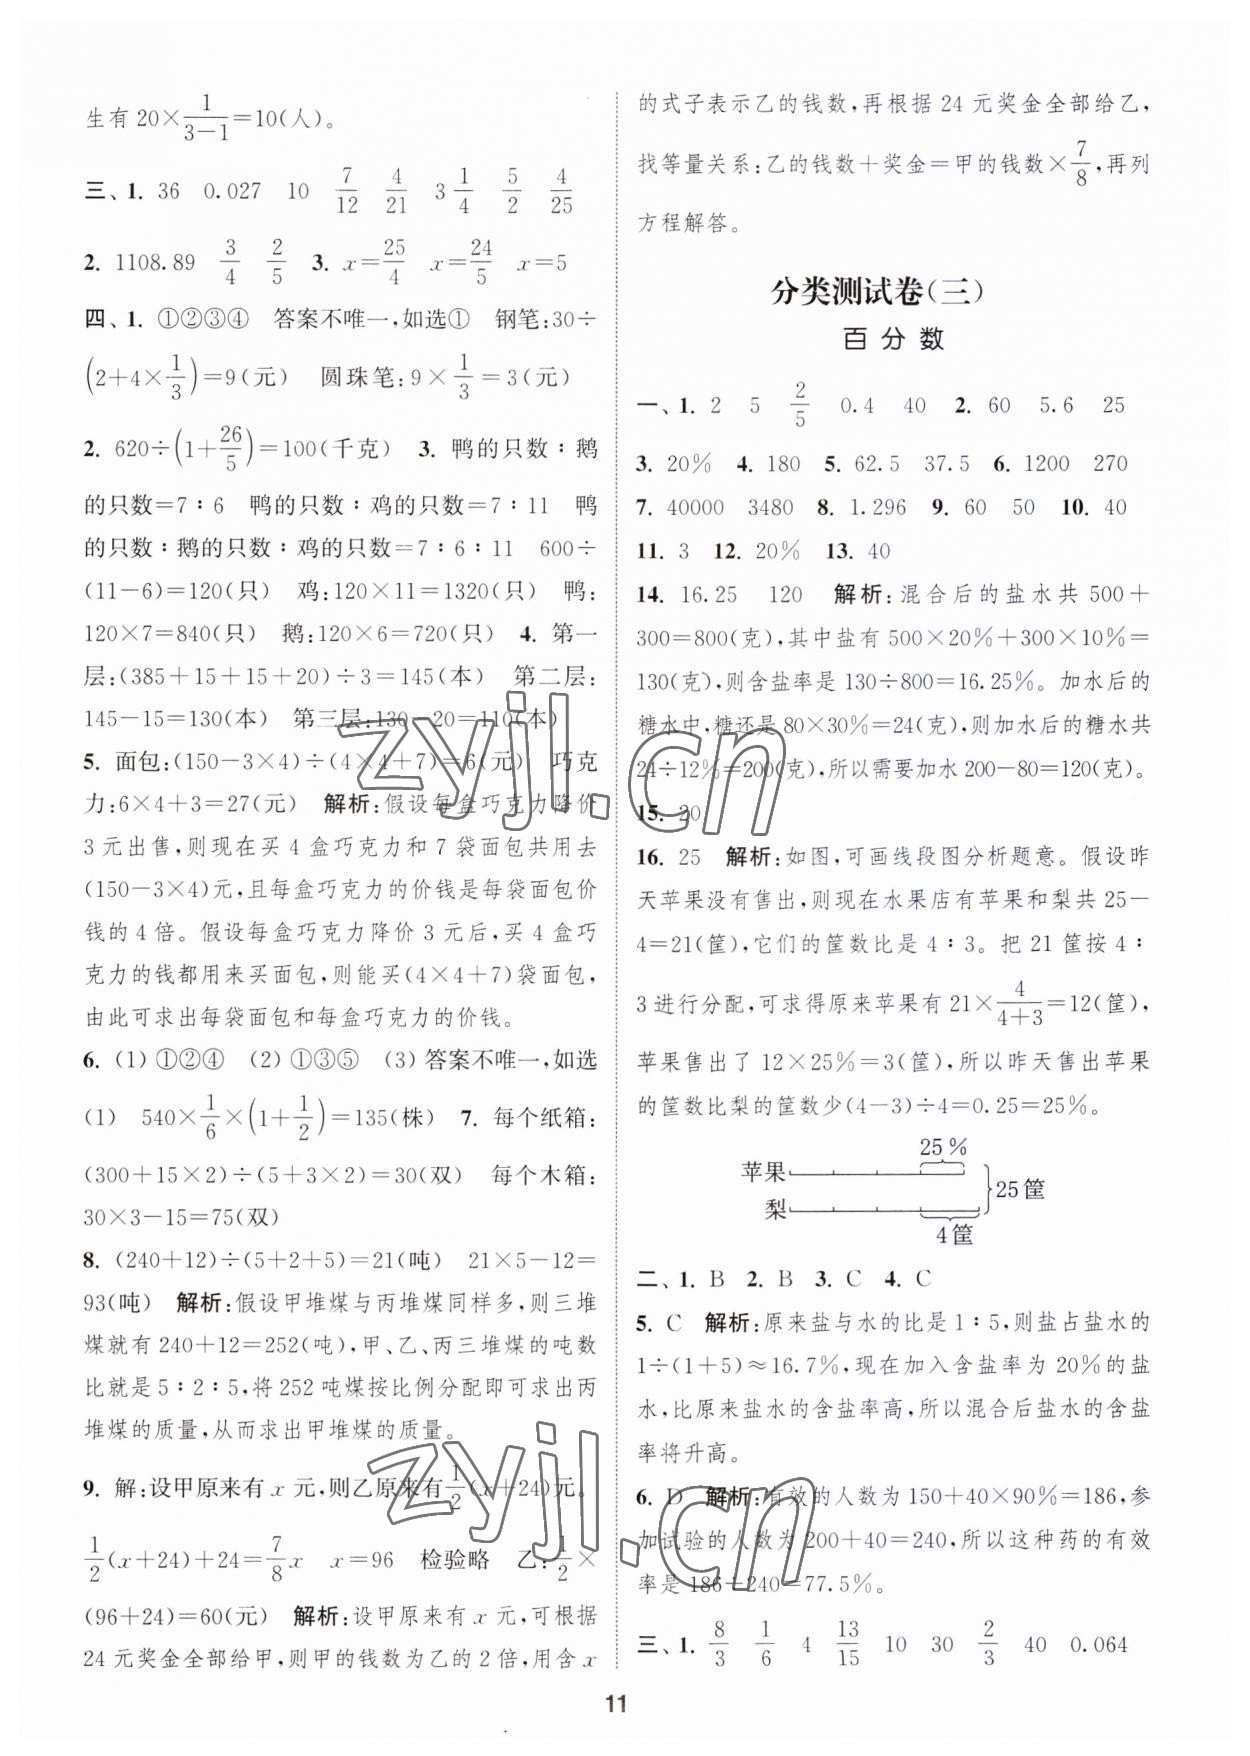 生有20×1/(3-1)=10(人)。
三、1. 36 0.027 10 7/12 4/21 3 1/4 5/2 4/25
2. 1108.89 3/4 2/5 3. x=25/4 x=24/5 x=5
四、1. ①②③④ 答案不唯一,如选① 钢笔:30÷
(2+4×1/3)=9(元) 圆珠笔:9×1/3=3(元)
2. 620÷(1+26/5)=100(千克) 3. 鸭的只数∶鹅
的只数=7∶6 鸭的只数∶鸡的只数=7∶11 鸭
的只数∶鹅的只数∶鸡的只数=7∶6∶11 600÷
(11-6)=120(只) 鸡:120×11=1320(只) 鸭:
120×7=840(只) 鹅:120×6=720(只) 4. 第一
层:(385+15+15+20)÷3=145(本) 第二层:
145-15=130(本) 第三层:130-20=110(本)
5. 面包:(150-3×4)÷(4×4+7)=6(元) 巧克
力:6×4+3=27(元) 解析:假设每盒巧克力降价
3元出售,则现在买4盒巧克力和7袋面包共用去
(150-3×4)元,且每盒巧克力的价钱是每袋面包价
钱的4倍。假设每盒巧克力降价3元后,买4盒巧
克力的钱都用来买面包,则能买(4×4+7)袋面包,
由此可求出每袋面包和每盒巧克力的价钱。
6. (1) ①②④ (2) ①③⑤ (3) 答案不唯一,如选
(1) 540×1/6×(1+1/2)=135(株) 7. 每个纸箱:
(300+15×2)÷(5+3×2)=30(双) 每个木箱:
30×3-15=75(双)
8. (240+12)÷(5+2+5)=21(吨) 21×5-12=
93(吨) 解析:假设甲堆煤与丙堆煤同样多,则三堆
煤就有240+12=252(吨),甲、乙、丙三堆煤的吨数
比就是5∶2∶5,将252吨煤按比例分配即可求出丙
堆煤的质量,从而求出甲堆煤的质量。
9. 解:设甲原来有x元,则乙原来有1/2(x+24)元。
1/2(x+24)+24=7/8x x=96 检验略 乙:1/2×
(96+24)=60(元) 解析:设甲原来有x元,可根据
24元奖金全部给甲,则甲的钱数为乙的2倍,用含x
的式子表示乙的钱数,再根据24元奖金全部给乙,
找等量关系:乙的钱数+奖金=甲的钱数×7/8,再列
方程解答。
分类测试卷(三)
百分数
一、1. 2 5 2/5 0.4 40 2. 60 5.6 25
3. 20% 4. 180 5. 62.5 37.5 6. 1200 270
7. 40000 3480 8. 1.296 9. 60 50 10. 40
11. 3 12. 20% 13. 40
14. 16.25 120 解析:混合后的盐水共500+
300=800(克),其中盐有500×20%+300×10%=
130(克),则含盐率是130÷800=16.25%。加水后的
糖水中,糖还是80×30%=24(克),则加水后的糖水共
24÷12%=200(克),所以需要加水200-80=120(克)。
15. 20
16. 25 解析:如图,可画线段图分析题意。假设昨
天苹果没有售出,则现在水果店有苹果和梨共25-
4=21(筐),它们的筐数比是4∶3。把21筐按4∶
3进行分配,可求得原来苹果有21×4/(4+3)=12(筐),
苹果售出了12×25%=3(筐),所以昨天售出苹果
的筐数比梨的筐数少(4-3)÷4=0.25=25%。
25%
苹果
25筐
梨
4筐
二、1. B 2. B 3. C 4. C
5. C 解析:原来盐与水的比是1∶5,则盐占盐水的
1÷(1+5)≈16.7%,现在加入含盐率为20%的盐
水,比原来盐水的含盐率高,所以混合后盐水的含盐
率将升高。
6. D 解析:有效的人数为150+40×90%=186,参
加试验的人数为200+40=240,所以这种药的有效
率是186÷240=77.5%。
三、1. 8/3 1/6 4 13/15 10 30 2/3 40 0.064
11
zyjl.cn
zyjl.cn